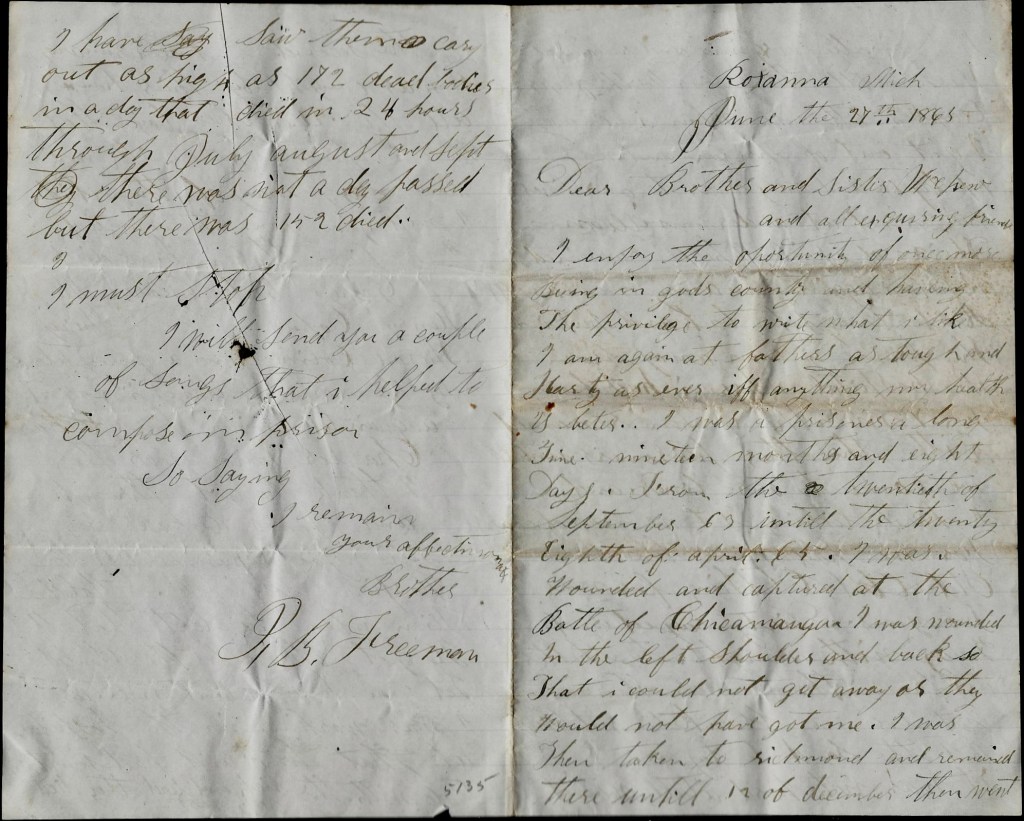 I have say saw them cary
out as high as 172 dead bodies
in a day that died in 24 hours
through July august and sept
they there was not a day passed
but there was 152 died.
I
I must Stop
I will send you a couple
of songs that i helped to
compose in prison
So Saying
I remain
your affectionate
Brother
P. B. Freeman
5135
Roxanna Mich
June the 27th 1865
Dear Brother and Sister
and all enquiring friends
I enjoy the oportunity of once more
Being in gods county and having
The privilege to write what i like
I am again at fathers as tough and
Harty as ever iff anything my health
Is beter.. I was a prisoner a long
Time. nineteen months and eight
Days. From the twentieth of
September 63 untill the twenty
Eighth of april. 65. I was
Wounded and captured at the
Batle of Chicamaugaa I was wounded
In the left Shoulder and back so
That i could not get away or they
Would not have got me. I was
Then taken to richmond and remained
there untill 12 of december then went